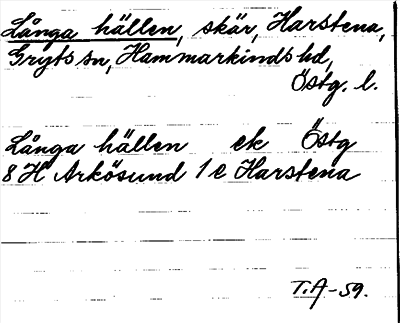 Långa hällen, skär, Harstena,
Gryts sn, Hammarkinds hd,
Östg. l.
Långa hällen ek Östg
8 H Arkösund 1 c Harstena
T.A-59.